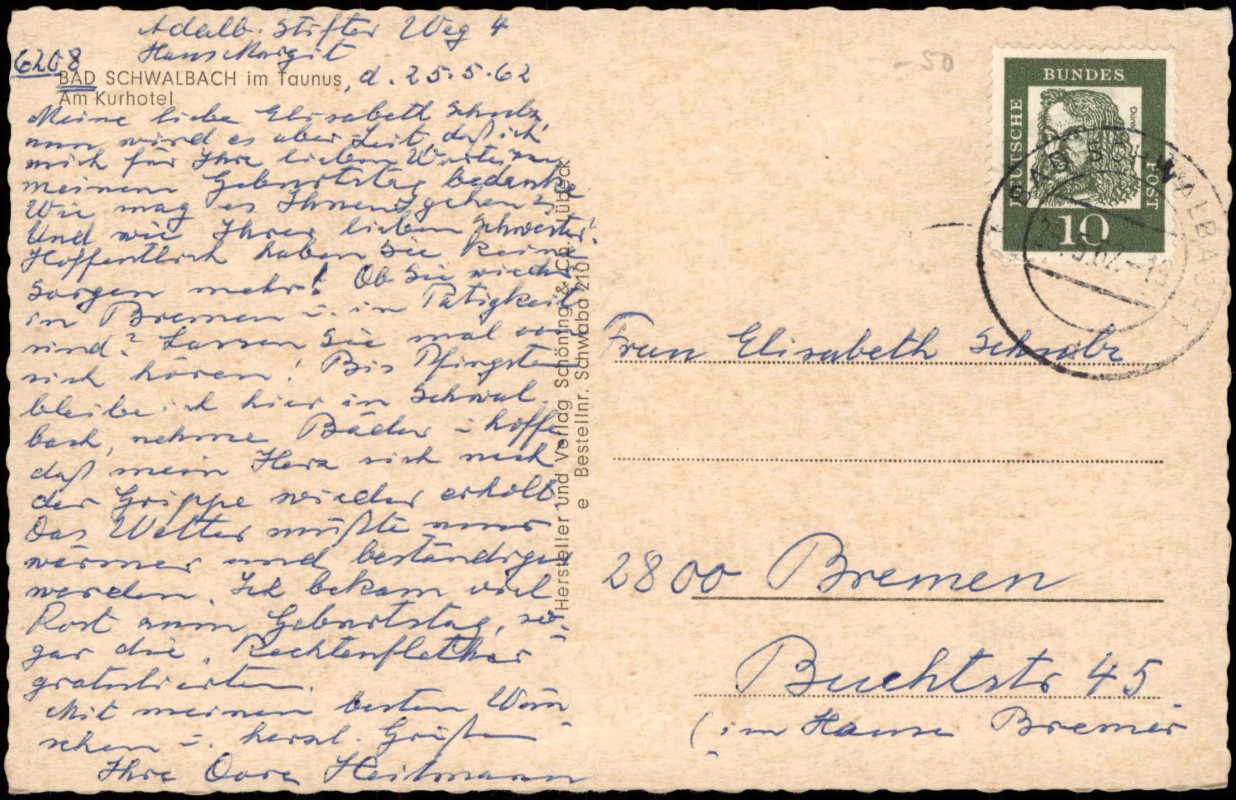 Adalb. Stifter Weg 4
Haus Margit
6208
BAD SCHWALBACH im Taunus, d. 25.5.62
Am Kurhotel
Meine liebe Elisabeth Schulz,
nun wird es aber Zeit, daß ich
mich für Ihre lieben Worte zu
meinem Geburtstag bedanke
Wie mag es Ihnen gehen?
Und wie Ihrer lieben Schwester?
Hoffentlich haben Sie keine
Sorgen mehr! Ob Sie wieder
in Bremen u. in Tätigkeit
sind? Lassen Sie mal von
sich hören! Bis Pfingsten
bleibe ich hier in Schwal-
bach, nehme Bäder u. hoffe,
daß mein Herz sich nach
der Grippe wieder erholt
Das Wetter müßte nur
wärmer und beständiger
werden. Ich bekam viel
Post zum Geburtstag, so-
gar die
gratulierten.
Mit meinen besten Wün-
schen u. herzl. Grüßen
Ihre Dora Heitmann
Hersteller und Verlag Schöning & Co., Lübeck
e Bestellnr. Schwaba 210
-50
DEUTSCHE BUNDESPOST
10
BAD SCHWALBACH
Frau Elisabeth Schulz
2800 Bremen
Buchtstr 45
(im Hause Bremer